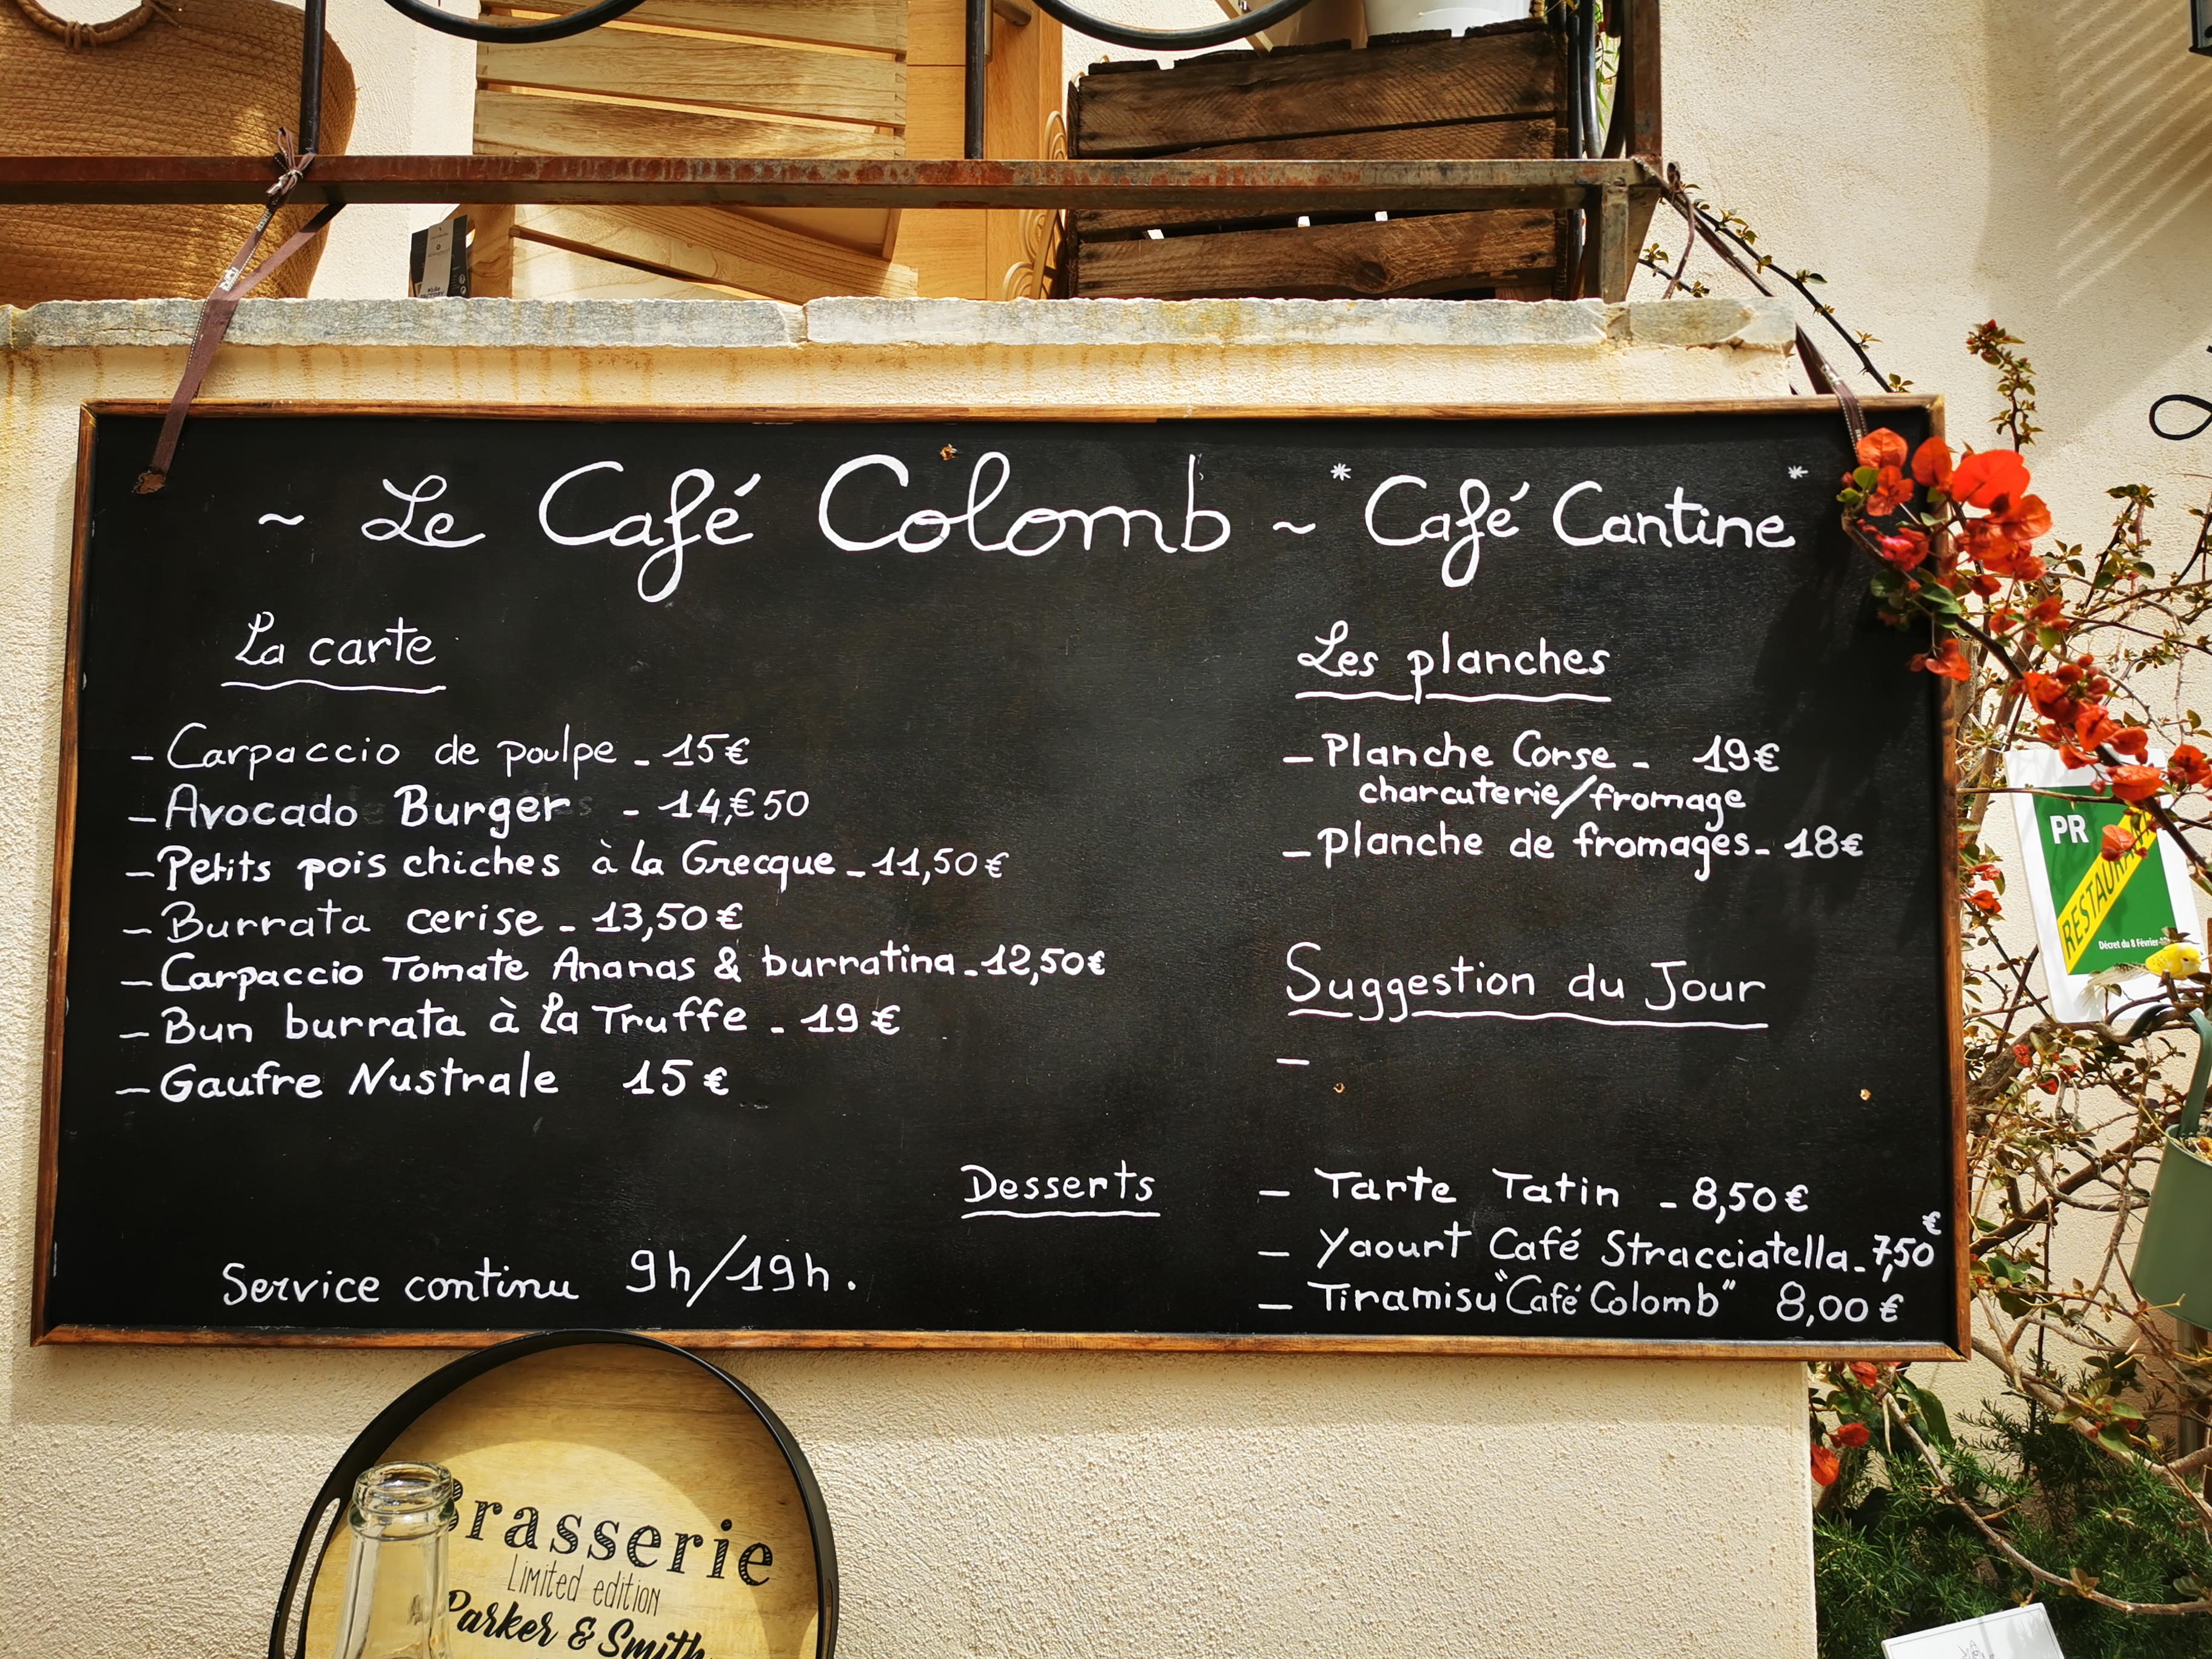 ~ Le Café Colomb ~ * Café Cantine *
La carte
- Carpaccio de poulpe - 15€
- Avocado Burger - 14,€50
- Petits pois chiches à la Grecque - 11,50€
- Burrata cerise - 13,50€
- Carpaccio Tomate Ananas & burratina - 12,50€
- Bun burrata à la Truffe - 19€
- Gaufre Nustrale 15€
Service continu 9h/19h.
Les planches
- Planche Corse - 19€
charcuterie/fromage
- Planche de fromages - 18€
Suggestion du Jour
-
Desserts
- Tarte Tatin - 8,50€
- Yaourt Café Stracciatella - 7,50€
- Tiramisu "Café Colomb" 8,00€
PR
RESTAURANT
Décret du 8 Février
Brasserie
Limited edition
Parker & Smith